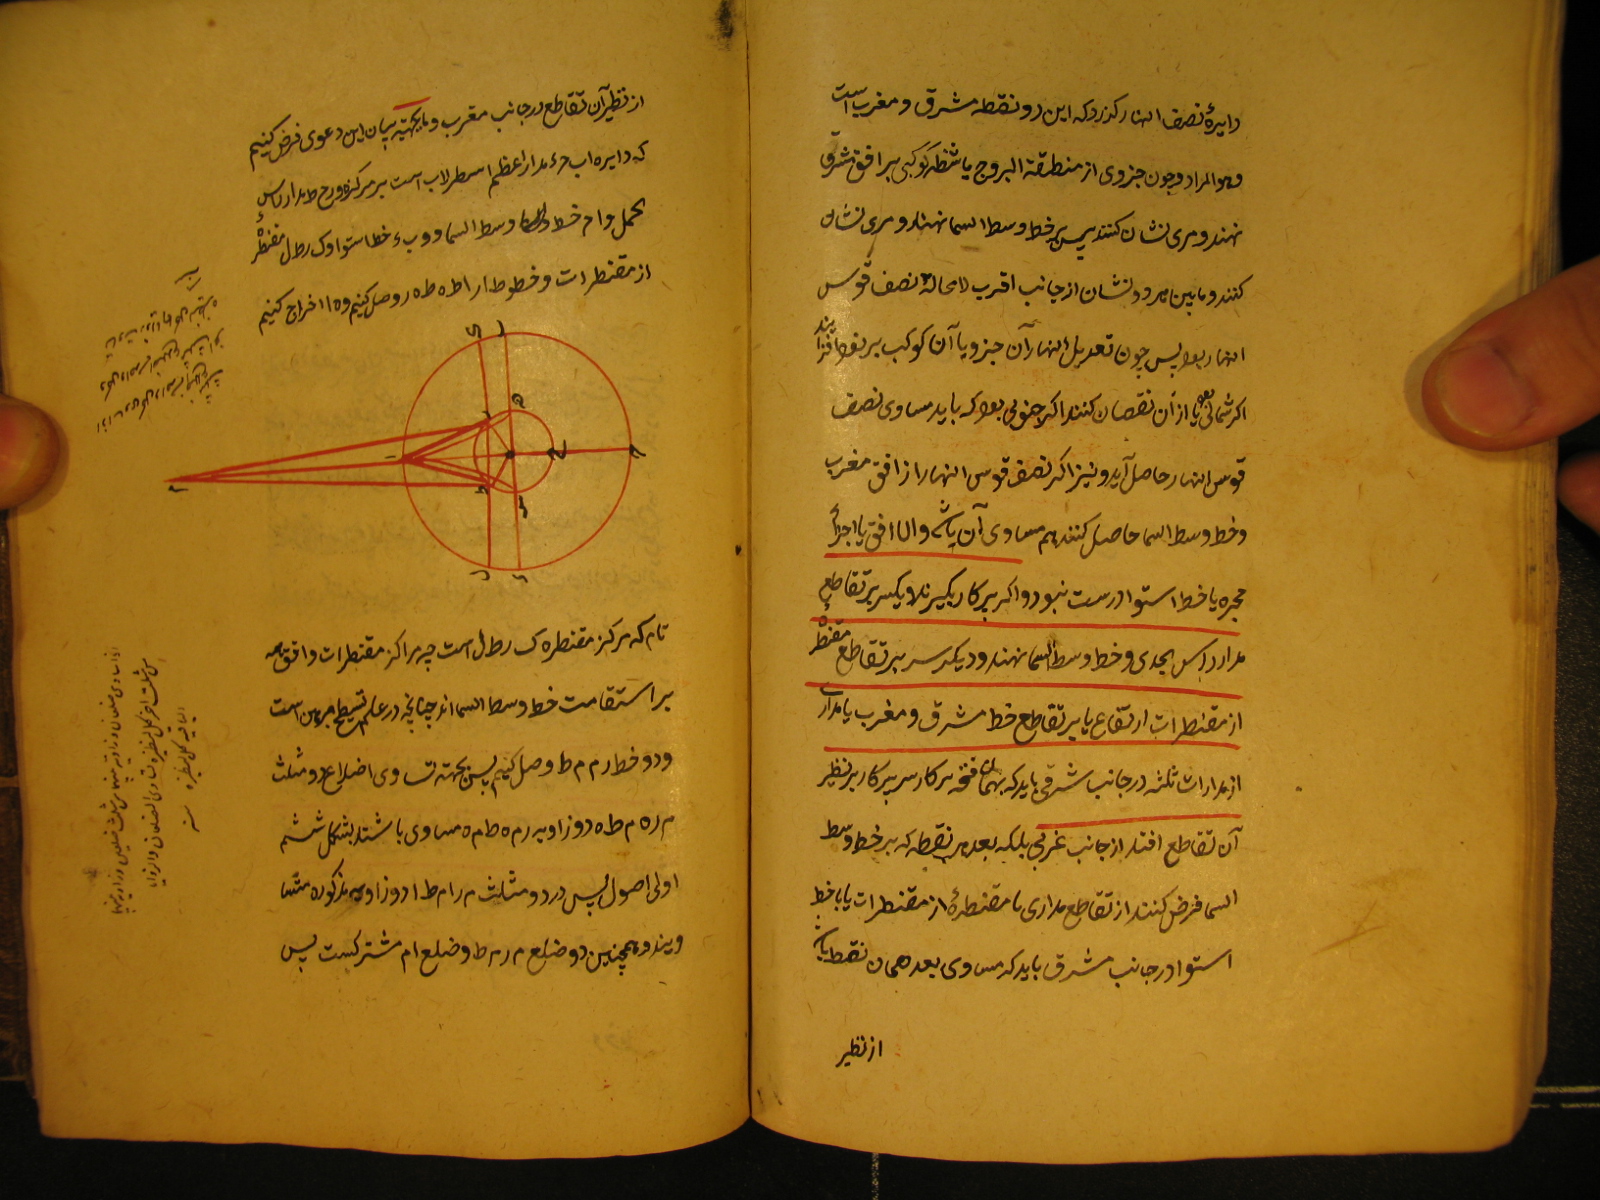 دایرهٔ نصف النهار کذرد که این دو نقطه مشرق و مغرب است
وهو المراد و چون جزوی از منطقة البروج یا شظیه کوکبی بر افق مشرق
نهند و مری نشان کنند پس بر خط وسط السما نهند و مری نشان
کنند و مابین هر دو نشان از جانب اقرب لامحاله نصف قوس
النهار بود پس چون تعدیل النهار آن جزو یا آن کوکب بر نود افزایند
اکر شمالی بود یا از آن نقصان کنند اکر جنوبی بود که باید مساوی نصف
قوس النهار حاصل آید و نیز اکر نصف قوس النهار از افق مغرب
و خط وسط السما حاصل کنند هم مساوی آن باشد والا افق یا اجزاء
حجره یا خط استوا درست نبود و اکر پرکار بکیرند و یکسر بر تقاطع
مدار راس الجدی و خط وسط السما نهند و دیکر سر بر تقاطع مقنطرهٔ
از مقنطرات ارتفاع یا بر تقاطع خط مشرق و مغرب با مداری
از مدارات ثلثه در جانب شرقی باید که بهمان فتحه پرکار سر پرکار بر نظیر
آن تقاطع افتد از جانب غربی بلکه بعد هر نقطه که بر خط وسط
السما فرض کنند از تقاطع مداری با مقنطرهٔ از مقنطرات یا با خط
استوا در جانب مشرق باید که مساوی بعد همان نقطه باشد
از نظیر
از نظیر آن تقاطع در جانب مغرب و ما بجهته بیان این دعوی فرض کنیم
که دایره اب حء مدار اعظم اسطرلاب است بر مرکز ه و رح ط مدار راس
الحمل و ام خط وسط السما و وب ء خط استوا و ک رط ل مقنطرهٔ
از مقنطرات و خطوط ار اط ه ط ه ر وصل کنیم و ه ا اخراج کنیم
تا م که مرکز مقنطره ک رط ل است چه مراکز مقنطرات و افق همه
بر استقامت خط وسط السما اند چنانچه در علم تسطیح مبرهن است
و دو خط رم م ط وصل کنیم پس بجهته تساوی اضلاع دو مثلث
م ر ه م ط ه دو زاویه ر م ه ط م ه مساوی باشند بشکل هشتم
اولی اصول پس در دو مثلث م ر ا م ط ا دو زاویه مذکوره متسا
ویند و همچنین دو ضلع م ر م ط و ضلع ام مشترکست پس